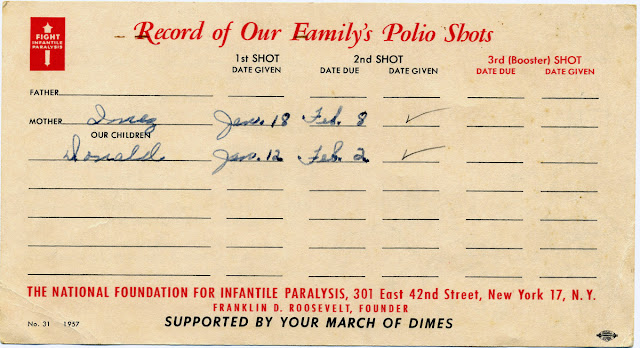 FIGHT
INFANTILE
PARALYSIS
Record of Our Family's Polio Shots
1st SHOT 2nd SHOT 3rd (Booster) SHOT
DATE GIVEN DATE DUE DATE GIVEN DATE DUE DATE GIVEN
FATHER
MOTHER Inez Jan. 18 Feb. 8 ✓
OUR CHILDREN
Donald Jan. 12 Feb. 2 ✓
THE NATIONAL FOUNDATION FOR INFANTILE PARALYSIS, 301 East 42nd Street, New York 17, N.Y.
FRANKLIN D. ROOSEVELT, FOUNDER
No. 31 1957 SUPPORTED BY YOUR MARCH OF DIMES